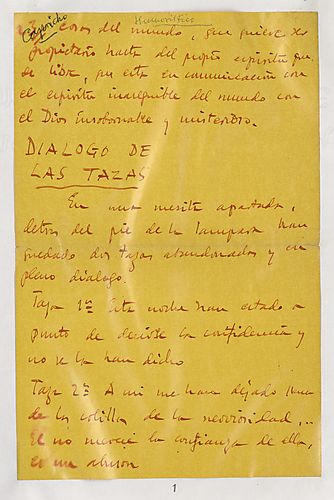 Humorístico
Capricho
cosas del mundo, que quiere ser
propietario hasta del propio espíritu que
es libre, que está en comunicación con
el espíritu inasequible del mundo con
el Dios insobornable y misterioso.
DIALOGO DE
LAS TAZAS
En una mesita apartada,
detras del pie de la lampara han
quedado dos tazas abandonadas y en
pleno dialogo.
Taza 1ª Esta noche han estado a
punto de decirse la confidencia y
no se la han dicho
Taza 2ª A mi me han dejado llena
de las colillas de la nerviosidad,...
El no merece la confianza de ella,
es un abuson
1